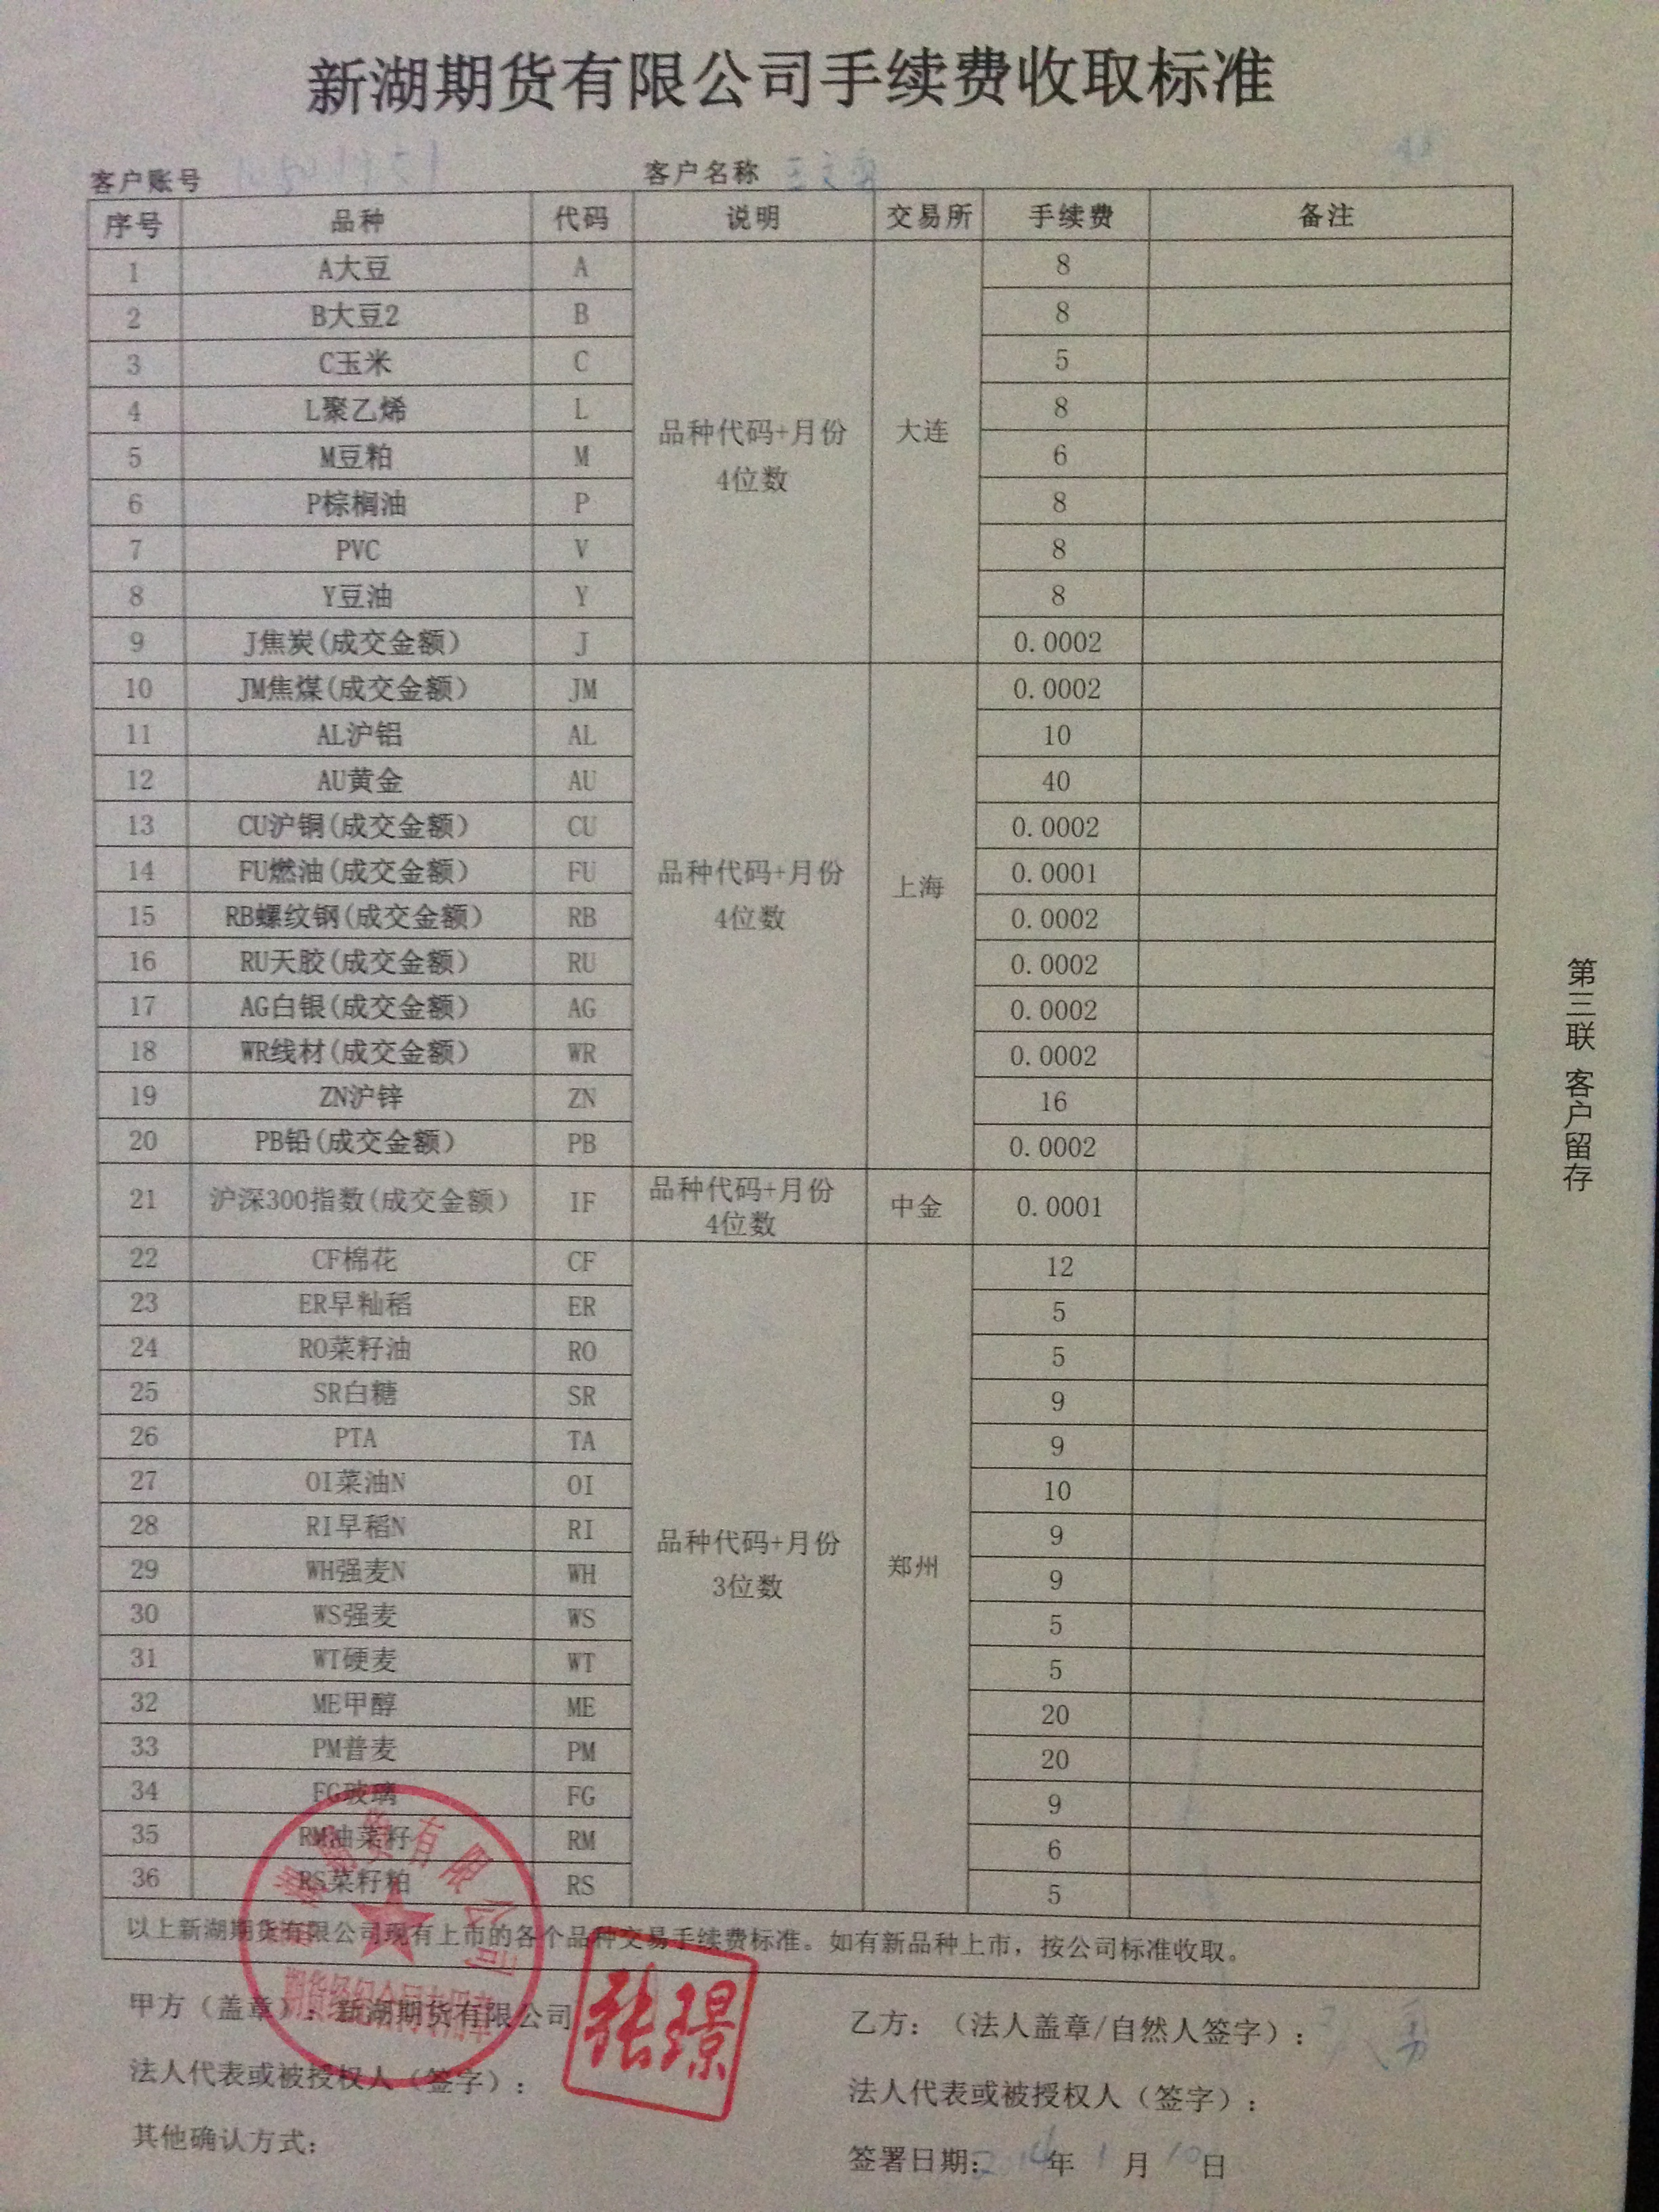 新湖期货有限公司手续费收取标准
客户账号 客户名称
序号 品种 代码 说明 交易所 手续费 备注
1 A大豆 A 8
2 B大豆2 B 8
3 C玉米 C 5
4 L聚乙烯 L 8
品种代码+月份 大连
5 M豆粕 M 6
4位数
6 P棕榈油 P 8
7 PVC V 8
8 Y豆油 Y 8
9 J焦炭(成交金额) J 0.0002
10 JM焦煤(成交金额) JM 0.0002
11 AL沪铝 AL 10
12 AU黄金 AU 40
13 CU沪铜(成交金额) CU 0.0002
14 FU燃油(成交金额) FU 品种代码+月份 上海 0.0001
15 RB螺纹钢(成交金额) RB 4位数 0.0002
16 RU天胶(成交金额) RU 0.0002
17 AG白银(成交金额) AG 0.0002
18 WR线材(成交金额) WR 0.0002
19 ZN沪锌 ZN 16
20 PB铅(成交金额) PB 0.0002
21 沪深300指数(成交金额) IF 品种代码+月份 中金 0.0001
4位数
22 CF棉花 CF 12
23 ER早籼稻 ER 5
24 RO菜籽油 RO 5
25 SR白糖 SR 9
26 PTA TA 9
27 OI菜油N OI 10
28 RI早稻N RI 品种代码+月份 9
29 WH强麦N WH 3位数 郑州 9
30 WS强麦 WS 5
31 WT硬麦 WT 5
32 ME甲醇 ME 20
33 PM普麦 PM 20
34 FG玻璃 FG 9
35 RM油菜籽 RM 6
36 RS菜籽粕 RS 5
以上新湖期货有限公司现有上市的各个品种交易手续费标准。如有新品种上市，按公司标准收取。
甲方（盖章）：新湖期货有限公司 乙方：（法人盖章/自然人签字）：
法人代表或被授权人（签字）： 法人代表或被授权人（签字）：
其他确认方式： 签署日期：2014年1月10日
第三联 客户留存
湖期货有限公司
期货经纪合同专用章
张璟